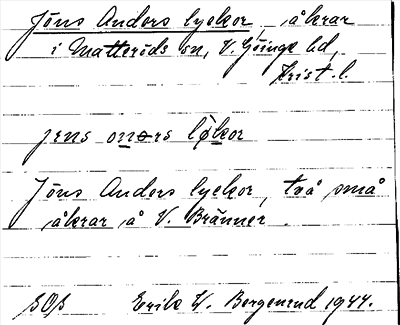 Jöns Anders lyckor, åkrar
i Matteröds sn, V. Göinge hd,
Krist. l.
jens oners løkor
Jöns Anders lyckor, två små
åkrar å V. Bränner.
SOS Erik W. Bergenrud 1944.